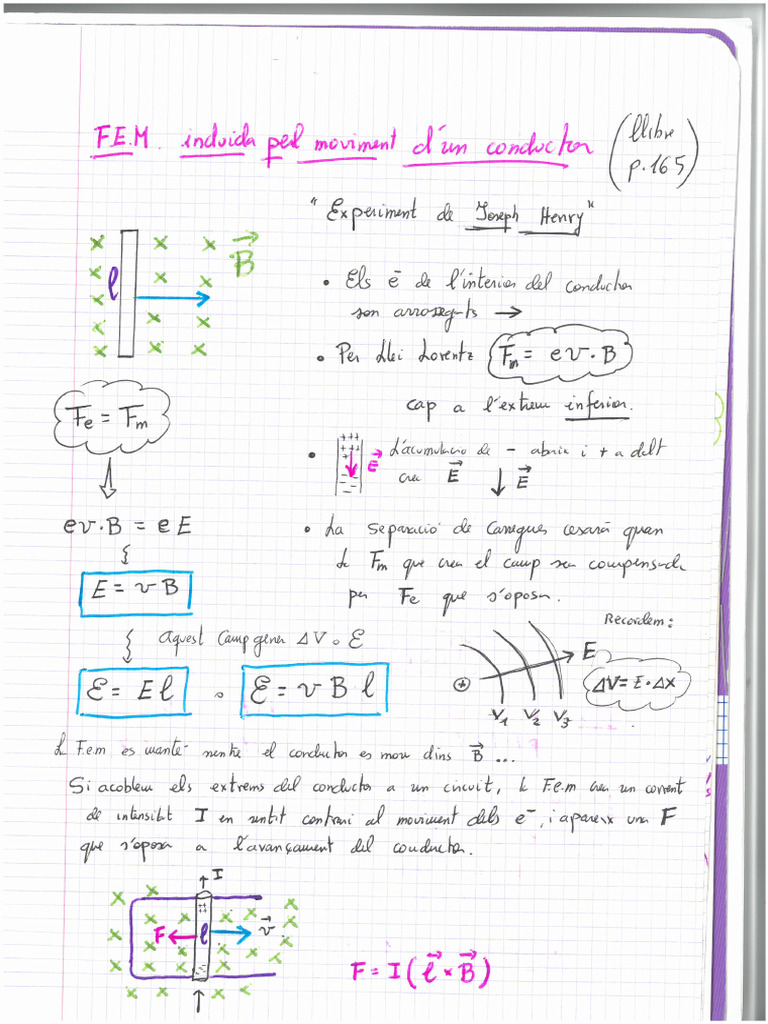 F.E.M. induida pel moviment d'un conductor
(Llibre
p.165)
"Experiment de Joseph Henry"
x x x B
l
• Els e- de l'interior del conductor
son arrossegats →
• Per Llei Lorentz Fm = e v · B
cap a l'extrem inferior.
Fe = Fm
• +++ +++ E -- L'acumulacio de - abaix i + a dalt
crea E ↓ E
e v · B = e E
E = v B
• La separació de Carregues cesarà quan
la Fm que crea el camp sea compensada
per Fe que s'oposa.
Aquest Camp genera ΔV o ℰ
ℰ = E l o ℰ = v B l
Recordem:
+ E
V1 V2 V3
ΔV = E · Δx
La F.e.m es manté mentre el conductor es mou dins B ...
Si acoblem els extrems del conductor a un circuit, la F.e.m crea un corrent
de intensitat I en sentit contrari al moviment dels e-, i apareix una F
que s'oposa a l'avançament del conductor.
I
F l v
F = I ( l × B )